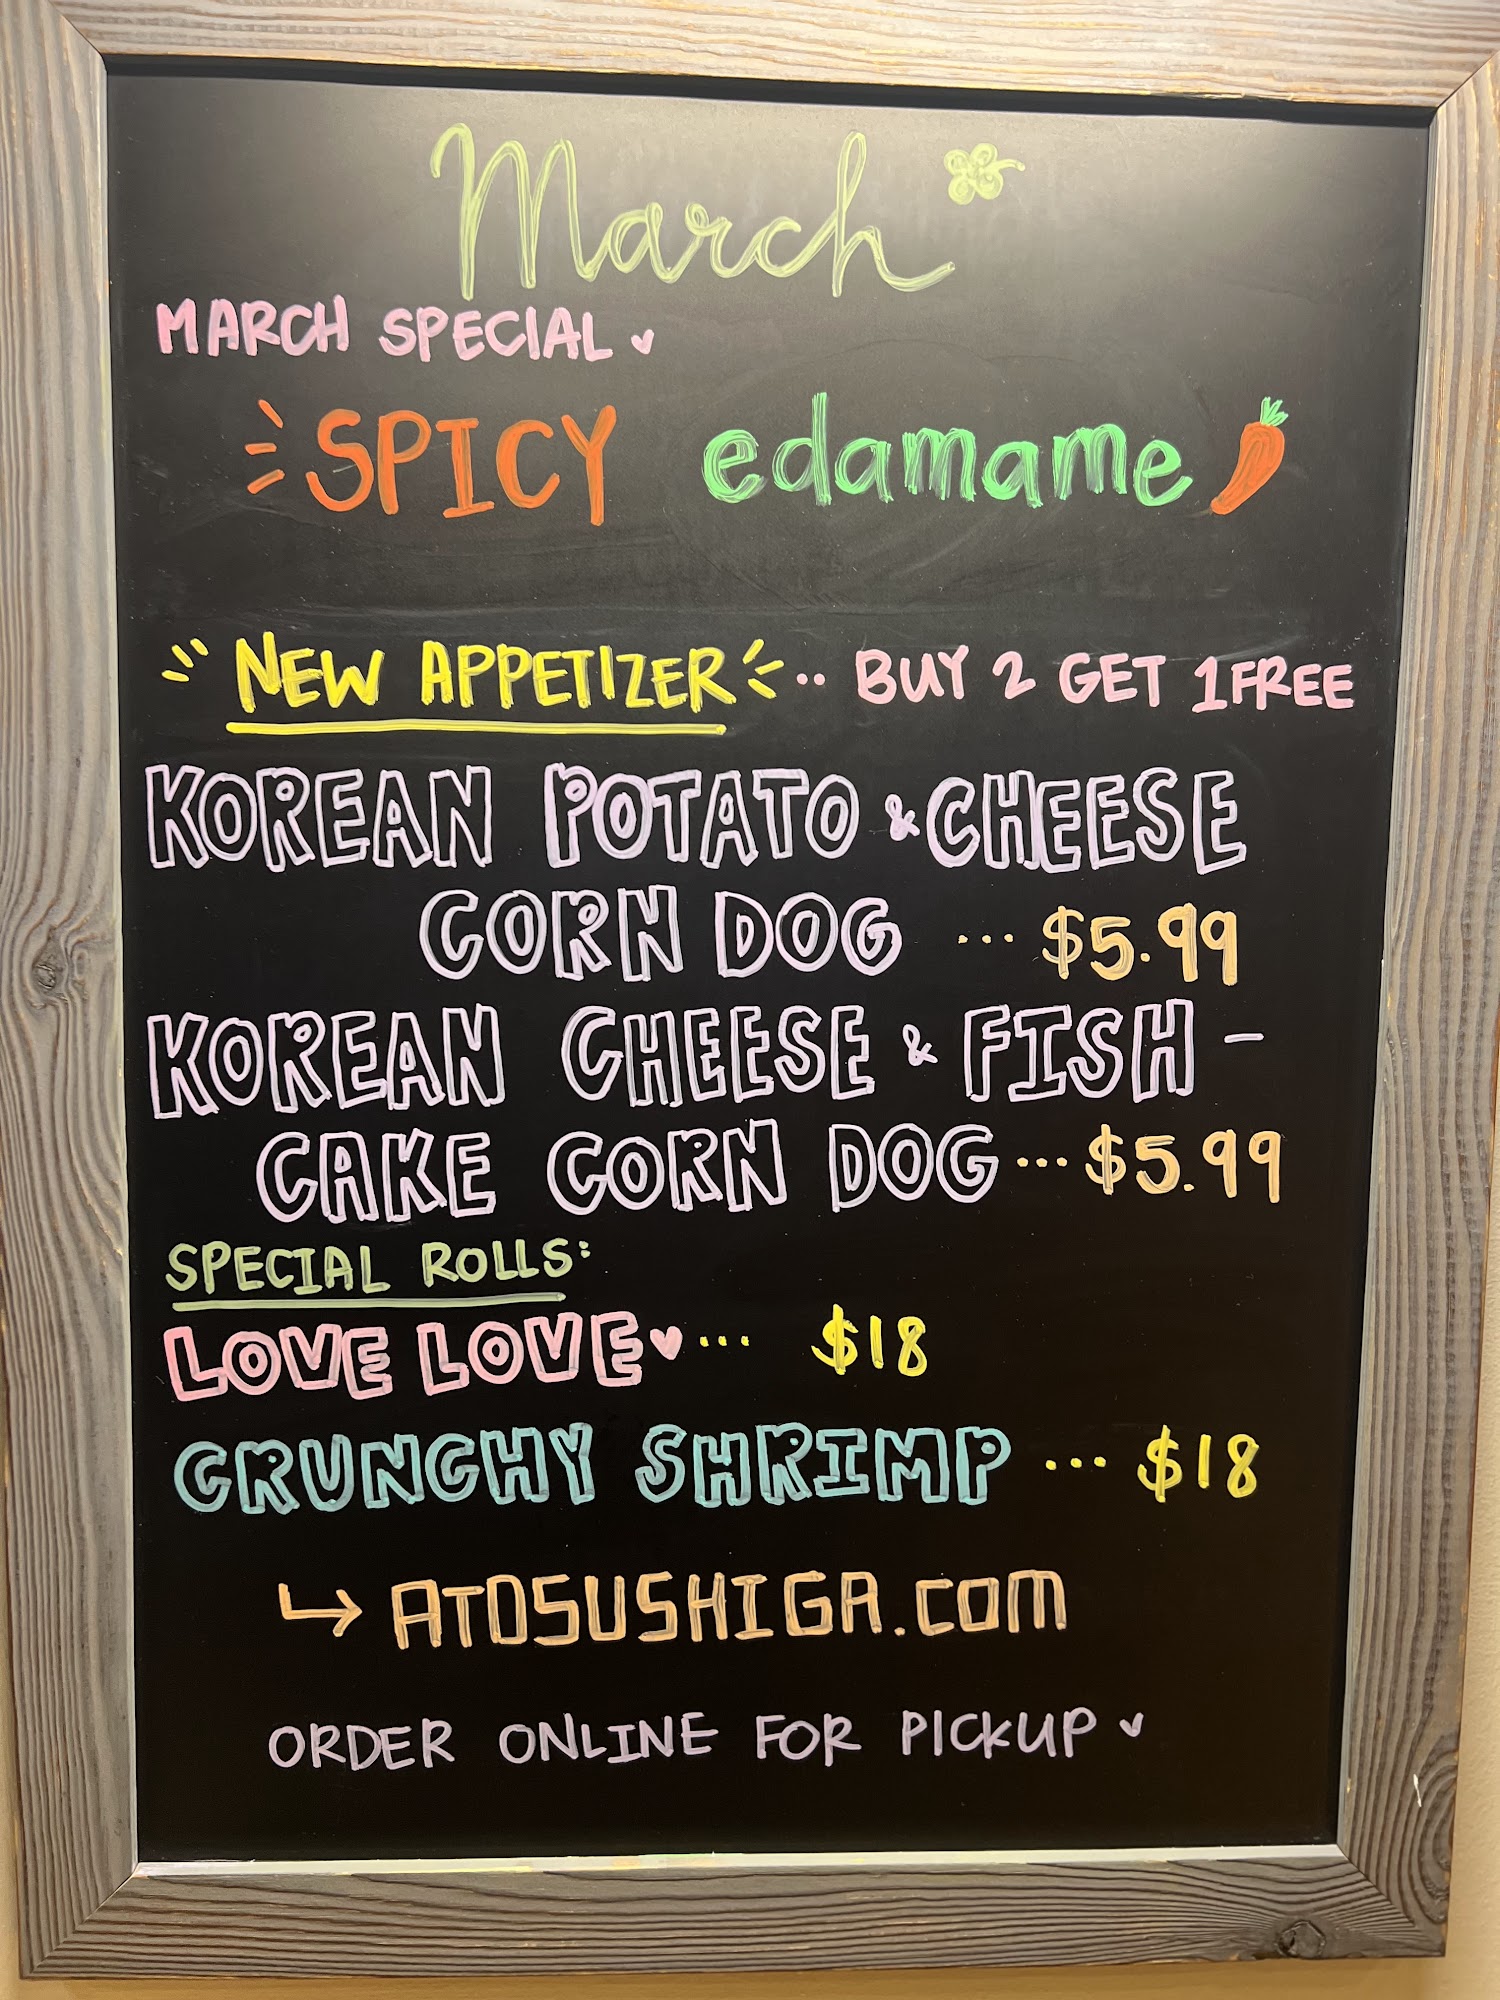 March
MARCH SPECIAL
SPICY edamame
NEW APPETIZER .. BUY 2 GET 1 FREE
KOREAN POTATO & CHEESE
CORN DOG ... $5.99
KOREAN CHEESE & FISH -
CAKE CORN DOG ... $5.99
SPECIAL ROLLS:
LOVE LOVE ♥ ... $18
CRUNCHY SHRIMP ... $18
↳ ATOSUSHIGA.com
ORDER ONLINE FOR PICKUP